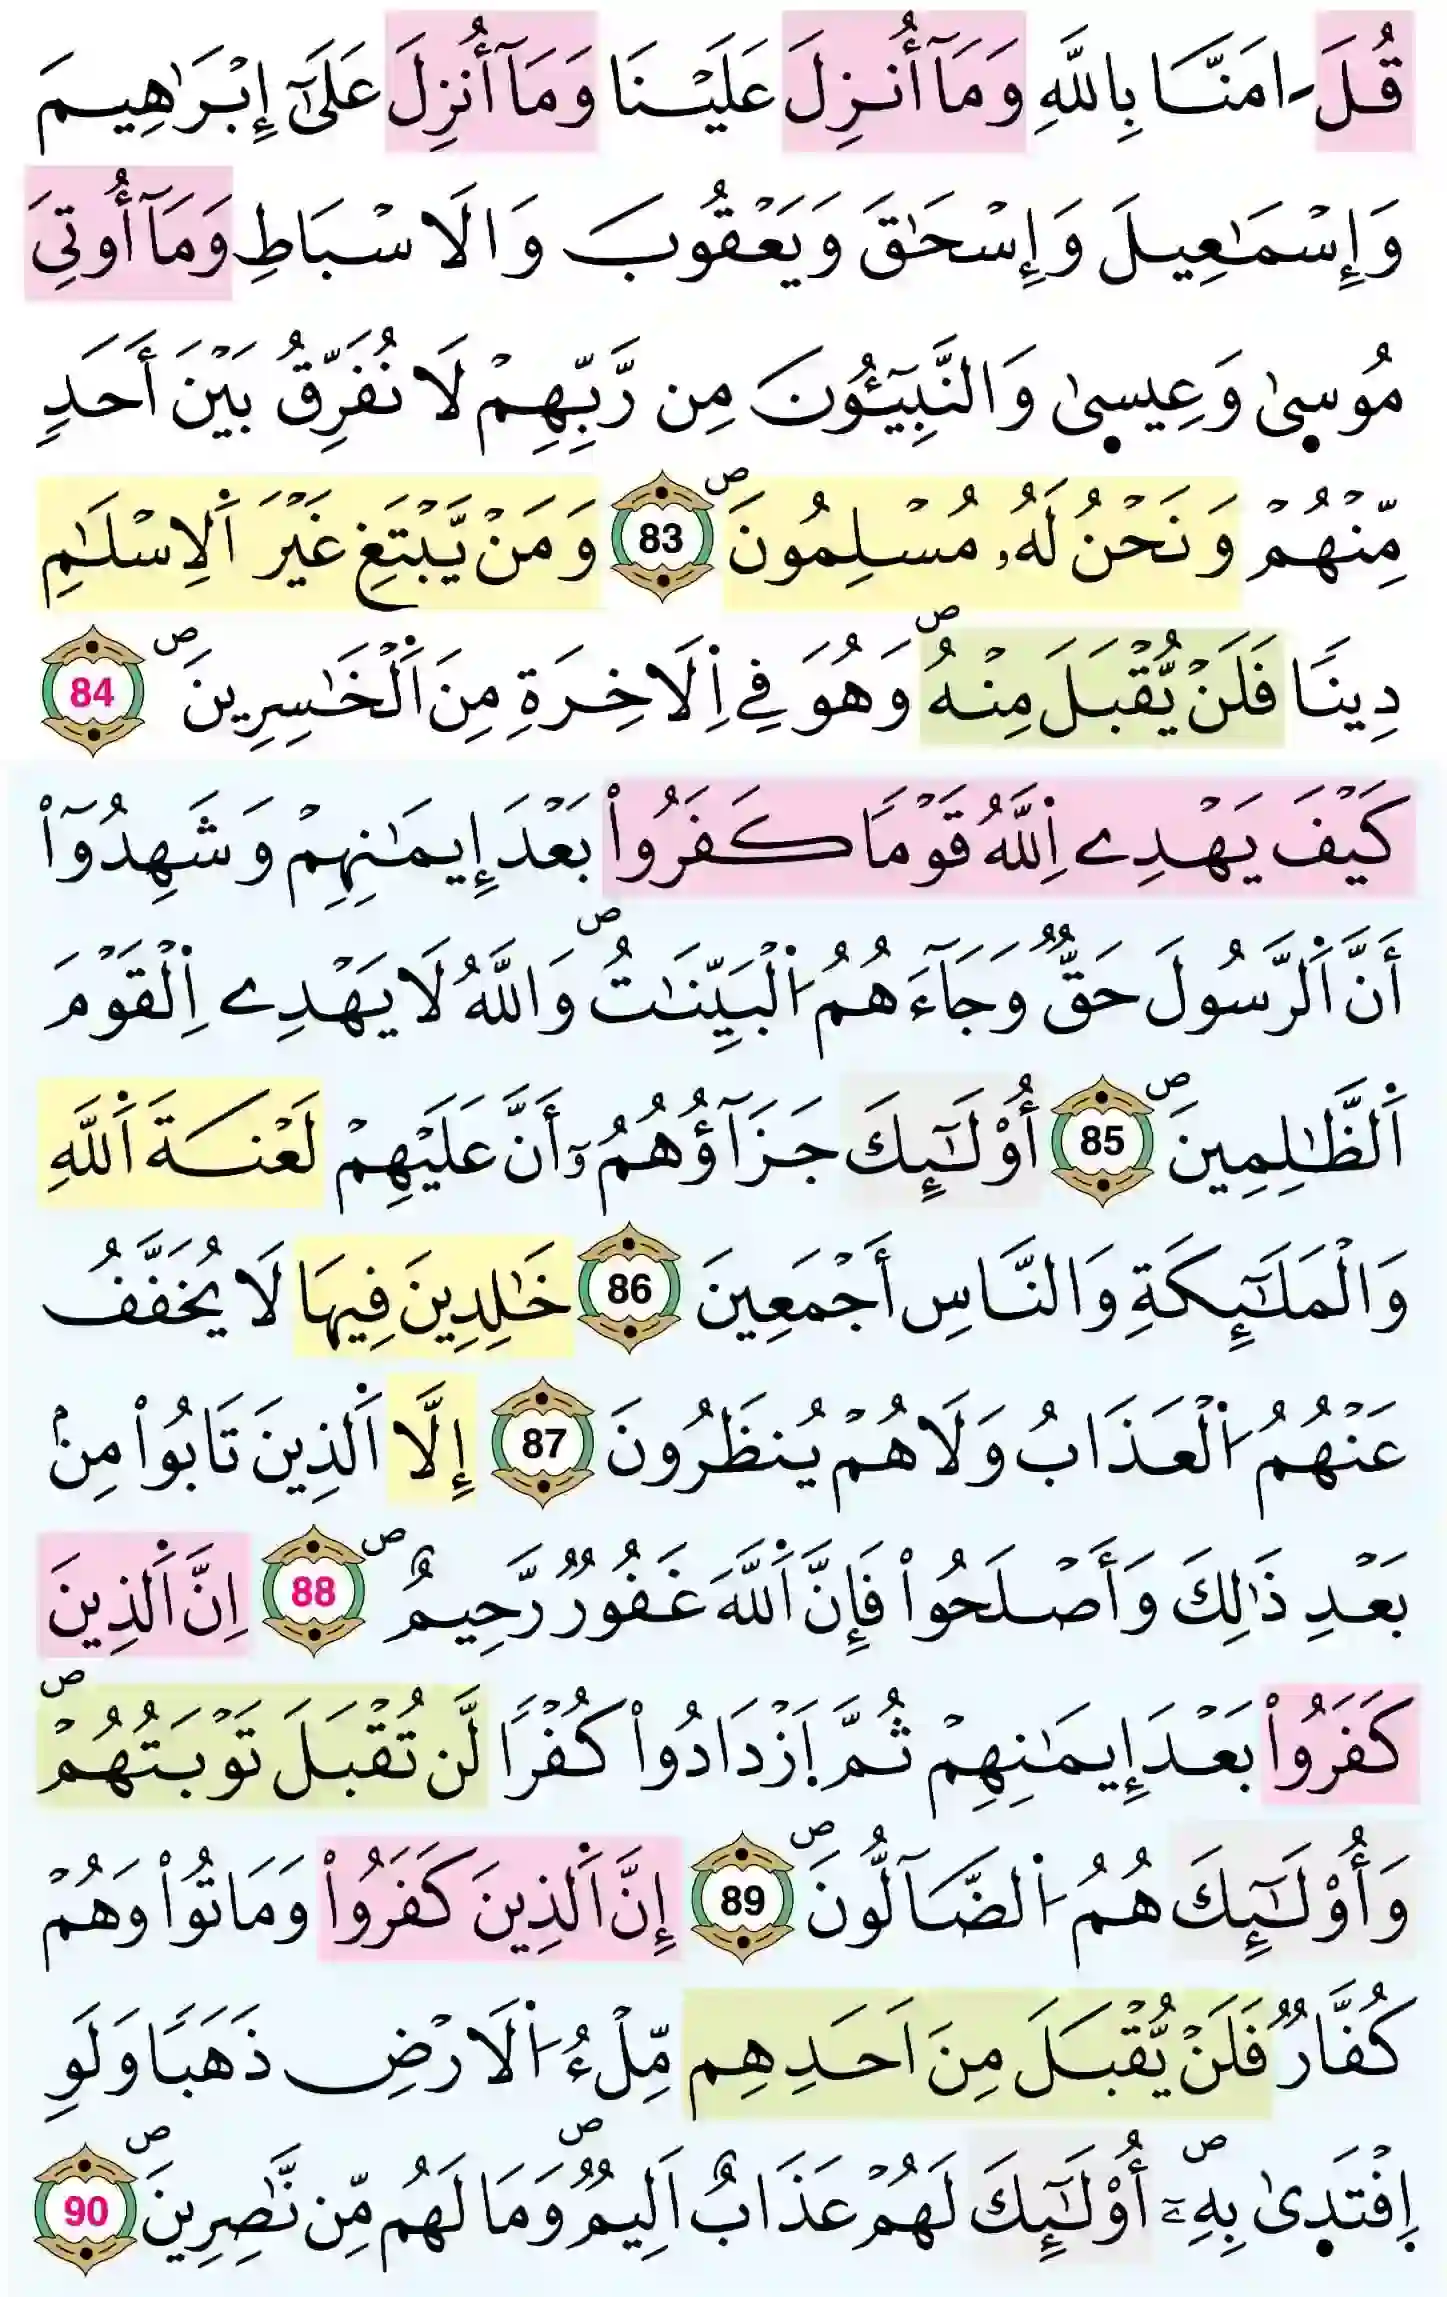 قُلَ ـَامَنَّا بِاللَّهِ وَمَآ أُنزِلَ عَلَيْنَا وَمَآ أُنزِلَ عَلَىٰٓ إِبْرَٰهِيمَ
وَإِسْمَٰعِيلَ وَإِسْحَٰقَ وَيَعْقُوبَ وَالَاسْبَاطِ وَمَآ أُوتِىَ
مُوسِىٰ وَعِيسِىٰ وَالنَّبِيٓـُٔونَ مِن رَّبِّهِمْ لَا نُفَرِّقُ بَيْنَ أَحَدٍ
مِّنْهُمْ وَنَحْنُ لَهُۥ مُسْلِمُونَ ۖ 83 وَمَنْ يَّبْتَغِ غَيْرَ اَ۬لِاسْلَٰمِ
دِينًا فَلَنْ يُّقْبَلَ مِنْهُ ۖ وَهُوَ فِے اِ۬لَاخِرَةِ مِنَ اَ۬لْخَٰسِرِينَ ۖ 84
كَيْفَ يَهْدِے اِ۬للَّهُ قَوْمًا كَفَرُواْ بَعْدَ إِيمَٰنِهِمْ وَشَهِدُوٓاْ
أَنَّ اَ۬لرَّسُولَ حَقٌّ وَجَآءَهُمُ اُ۬لْبَيِّنَٰتُ ۖ وَاللَّهُ لَا يَهْدِے اِ۬لْقَوْمَ
اَ۬لظَّٰلِمِينَ ۖ 85 أُوْلَٰٓئِكَ جَزَآؤُهُمُۥٓ أَنَّ عَلَيْهِمْ لَعْنَةَ اَ۬للَّهِ
وَالْمَلَٰٓئِكَةِ وَالنَّاسِ أَجْمَعِينَ 86 خَٰلِدِينَ فِيهَا لَا يُخَفَّفُ
عَنْهُمُ اُ۬لْعَذَابُ وَلَا هُمْ يُنظَرُونَ 87 إِلَّا اَ۬لذِينَ تَابُواْ مِنۢ
بَعْدِ ذَٰلِكَ وَأَصْلَحُواْ فَإِنَّ اَ۬للَّهَ غَفُورٌ رَّحِيمٌ ۖ 88 اِنَّ اَ۬لذِينَ
كَفَرُواْ بَعْدَ إِيمَٰنِهِمْ ثُمَّ اَ۪زْدَادُواْ كُفْرًا لَّن تُقْبَلَ تَوْبَتُهُمْ ۖ
وَأُوْلَٰٓئِكَ هُمُ اُ۬لضَّآلُّونَ ۖ 89 إِنَّ اَ۬لذِينَ كَفَرُواْ وَمَاتُواْ وَهُمْ
كُفَّارٌ فَلَنْ يُّقْبَلَ مِنَ اَحَدِهِم مِّلْءُ اُ۬لَارْضِ ذَهَبًا وَلَوِ
اِ۪فْتَدِىٰ بِهِۦٓ ۖ أُوْلَٰٓئِكَ لَهُمْ عَذَابٌ اَلِيمٌ ۖ وَمَا لَهُم مِّن نَّٰصِرِينَ ۖ 90